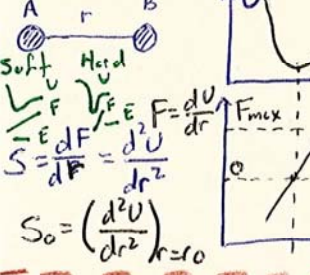 A r B
Soft Hard
U U
F F
E E
F = dU/dr
S = dF/dr = d²U/dr²
S₀ = (d²U/dr²)r=r₀
Fmax
0